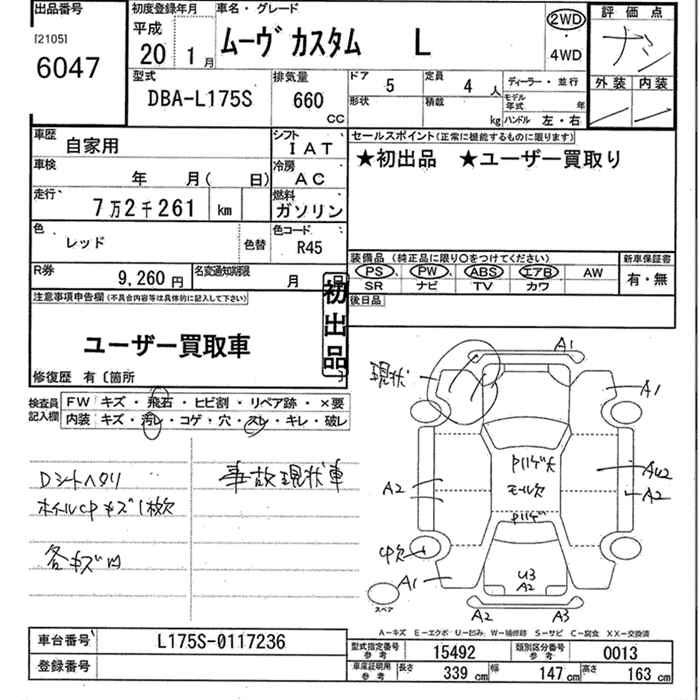 出品番号
[2105]
6047
初度登録年月
平成
20 1月
車名・グレード
ムーヴ カスタム L
2WD
・
4WD
評価点
外装 内装
型式
DBA-L175S
排気量
660
CC
ドア 5
定員 4 人
ディーラー・並行
形状
積載 kg
モデル年式 年
ハンドル 左・右
車歴 自家用
シフト IAT
車検 年 月( 日)
冷房 AC
走行 7万2千261 km
燃料 ガソリン
色 レッド
色替
色コード R45
R券 9,260円
名変通知期限 月
セールスポイント(正常に機能するものに限ります)
★初出品 ★ユーザー買取り
装備品 (純正品に限り○をつけてください)
新車保証書
PS PW ABS エアB AW
SR ナビ TV カワ
有・無
後日品
注意事項申告欄(不具合内容等は具体的に記入して下さい)
ユーザー買取車
初出品
修復歴 有〔箇所 〕
検査員記入欄
FW キズ・飛石・ヒビ割・リペア跡・×要
内装 キズ・汚レ・コゲ・穴・スレ・キレ・破レ
Dシートヘタリ
事故現状車
ホイルCPキズ1枚欠
各キズ凹
現状
A1
A1
A2
AU2
A2
モール欠
中欠
A1
U3
A2
スペア
A2
A3
A-キズ E-エクボ U-凹み W-補修跡 S-サビ C-腐食 XX-交換済
車台番号 L175S-0117236
登録番号
型式指定番号 参考 15492
類別区分番号 参考 0013
車庫証明用 参考 長さ 339 cm 幅 147 cm 高さ 163 cm